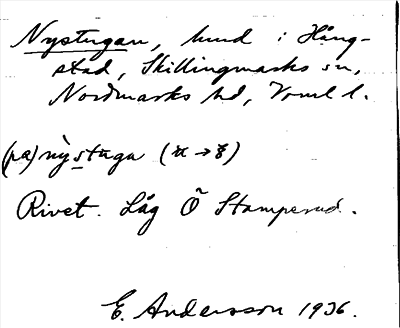 Nystugan, hmd i Häng-
stad, Skillingmarks sn,
Nordmarks hd, Vrml l.
(pa) nỳstuga
Rivet. Låg Ö Stamperud.
E. Andersson 1936.